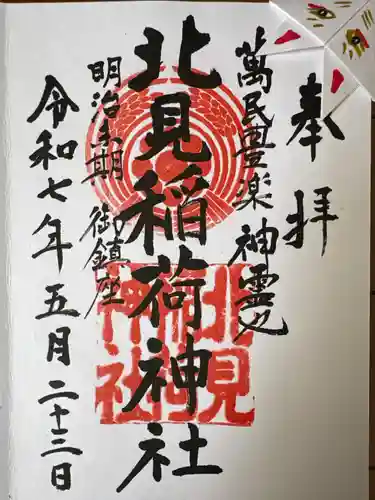 奉拝
萬民豊楽 神霊也
北見稲荷神社
明治末期 御鎮座
令和七年五月二十三日
北見
稲荷
神社